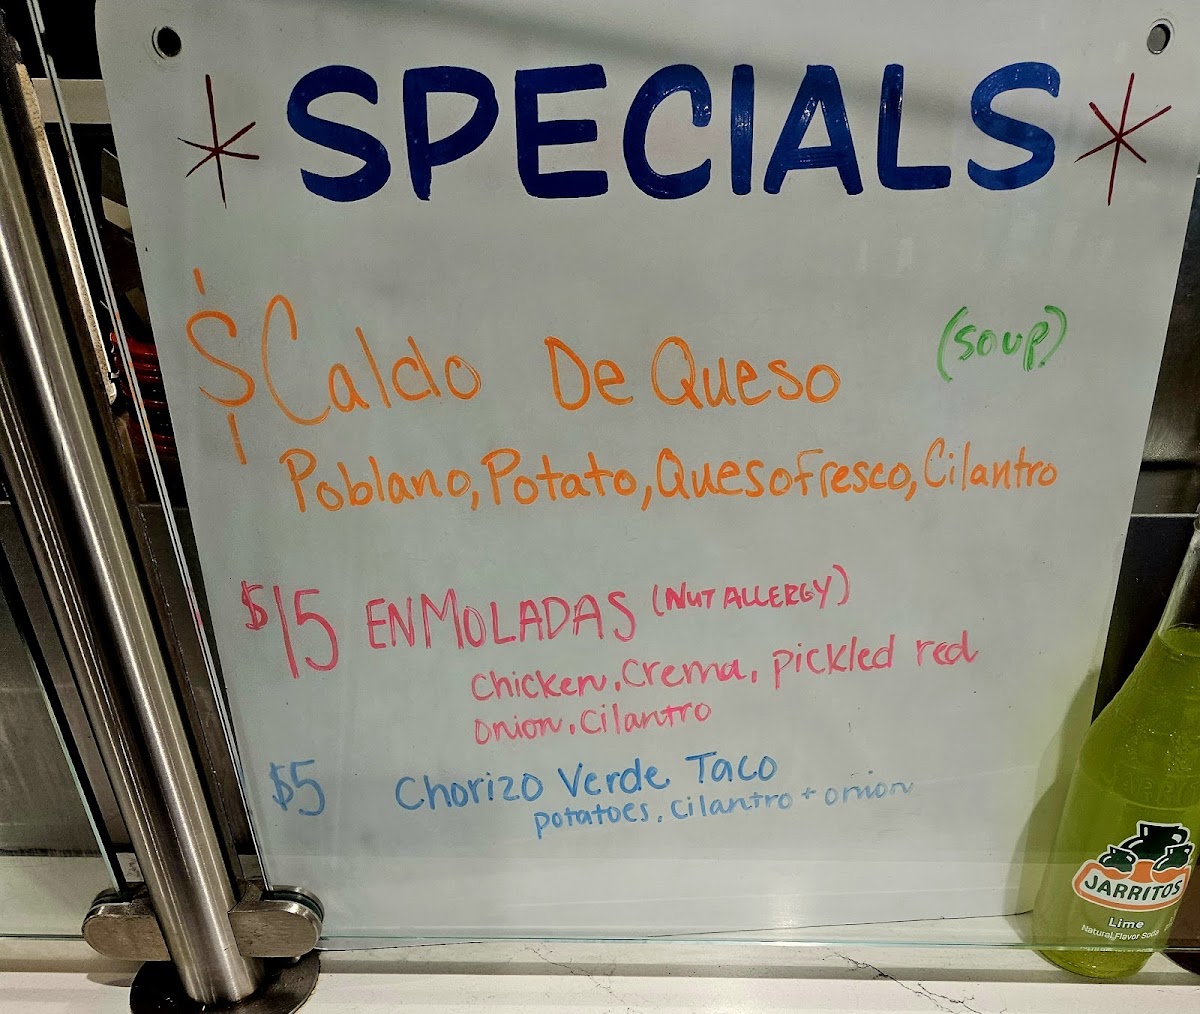 * SPECIALS *
$ Caldo De Queso (soup)
Poblano, Potato, Queso Fresco, Cilantro
$15 ENMOLADAS (NUT ALLERGY)
chicken, crema, pickled red
onion, cilantro
$5 Chorizo Verde Taco
potatoes, cilantro + onion
JARRITOS
Lime
Natural Flavor Soda